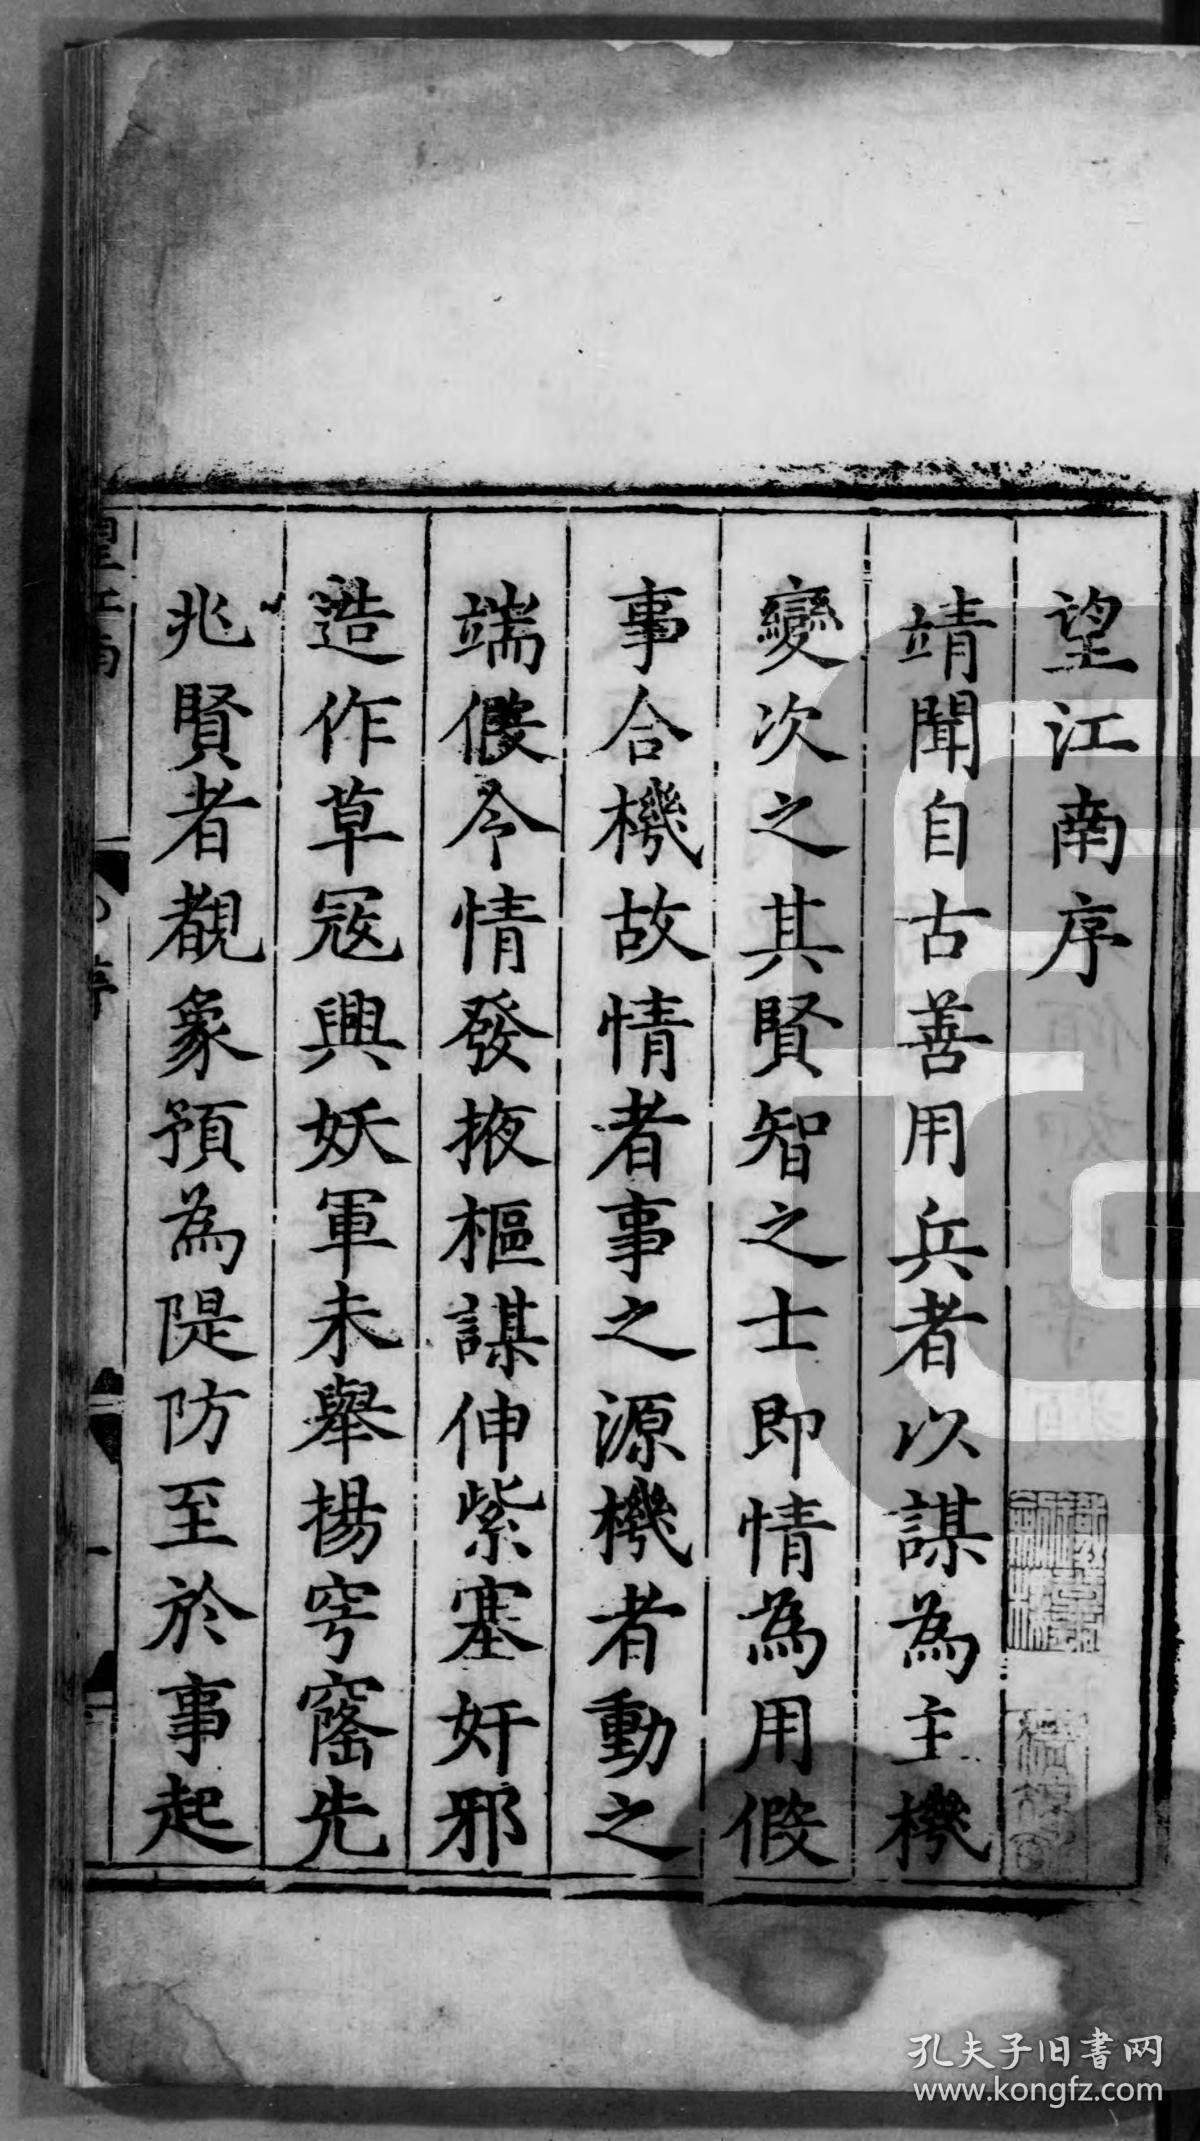 望江南序
靖聞自古善用兵者以謀為主機
變次之其賢智之士即情為用假
事合機故情者事之源機者動之
端假令情發掖樞謀伸紫塞奸邪
造作草冦興妖軍未舉揚穹窿先
兆賢者覩象預為隄防至於事起
望江南
序
一
孔夫子旧書网
www.kongfz.com